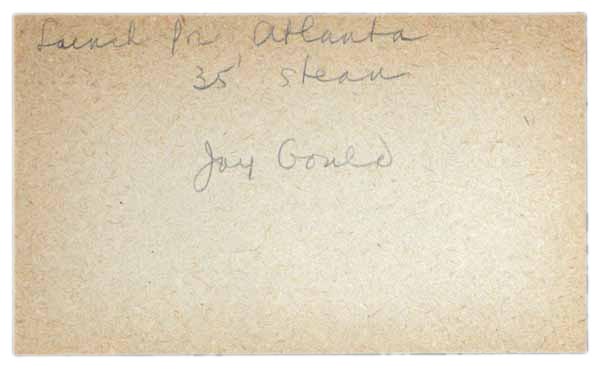 Launch for Atlanta
35' steam
Jay Gould